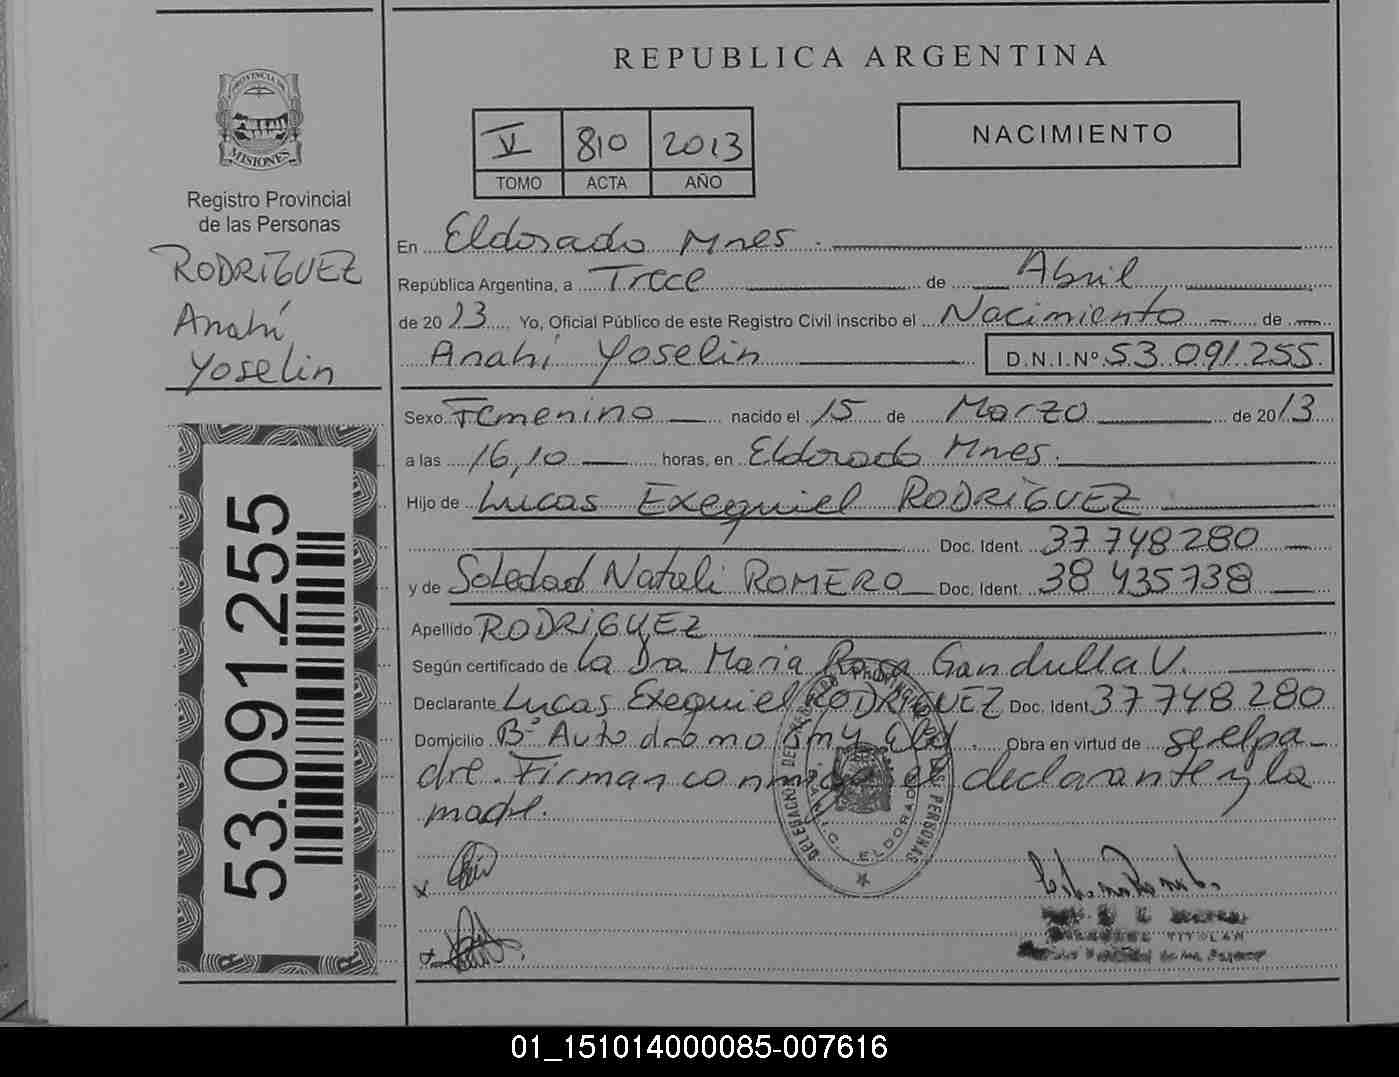 REPUBLICA ARGENTINA
PROVINCIA DE MISIONES
Registro Provincial
de las Personas
RODRÍGUEZ
Anahí
Yoselin
53.091.255
V 810 2013
TOMO ACTA AÑO
NACIMIENTO
En Eldorado Mnes.
República Argentina, a Trece de Abril
de 2013 Yo, Oficial Público de este Registro Civil inscribo el Nacimiento de
Anahí Yoselin D.N.I.Nº 53.091.255
Sexo Femenino nacido el 15 de Marzo de 2013
a las 16,10 horas, en Eldorado Mnes.
Hijo de Lucas Exequiel RODRÍGUEZ
Doc. Ident. 37748280
y de Soledad Natali ROMERO Doc. Ident. 38435738
Apellido RODRIGUEZ
Según certificado de La Dra Maria Rosa Gandulla V.
Declarante Lucas Exequiel RODRIGUEZ Doc. Ident 37748280
Domicilio Bº Autodromo Obra en virtud de ser el pa-
dre. Firman conmigo el declarante y la
madre.
x
ELDORADO
TITULAR
01_151014000085-007616